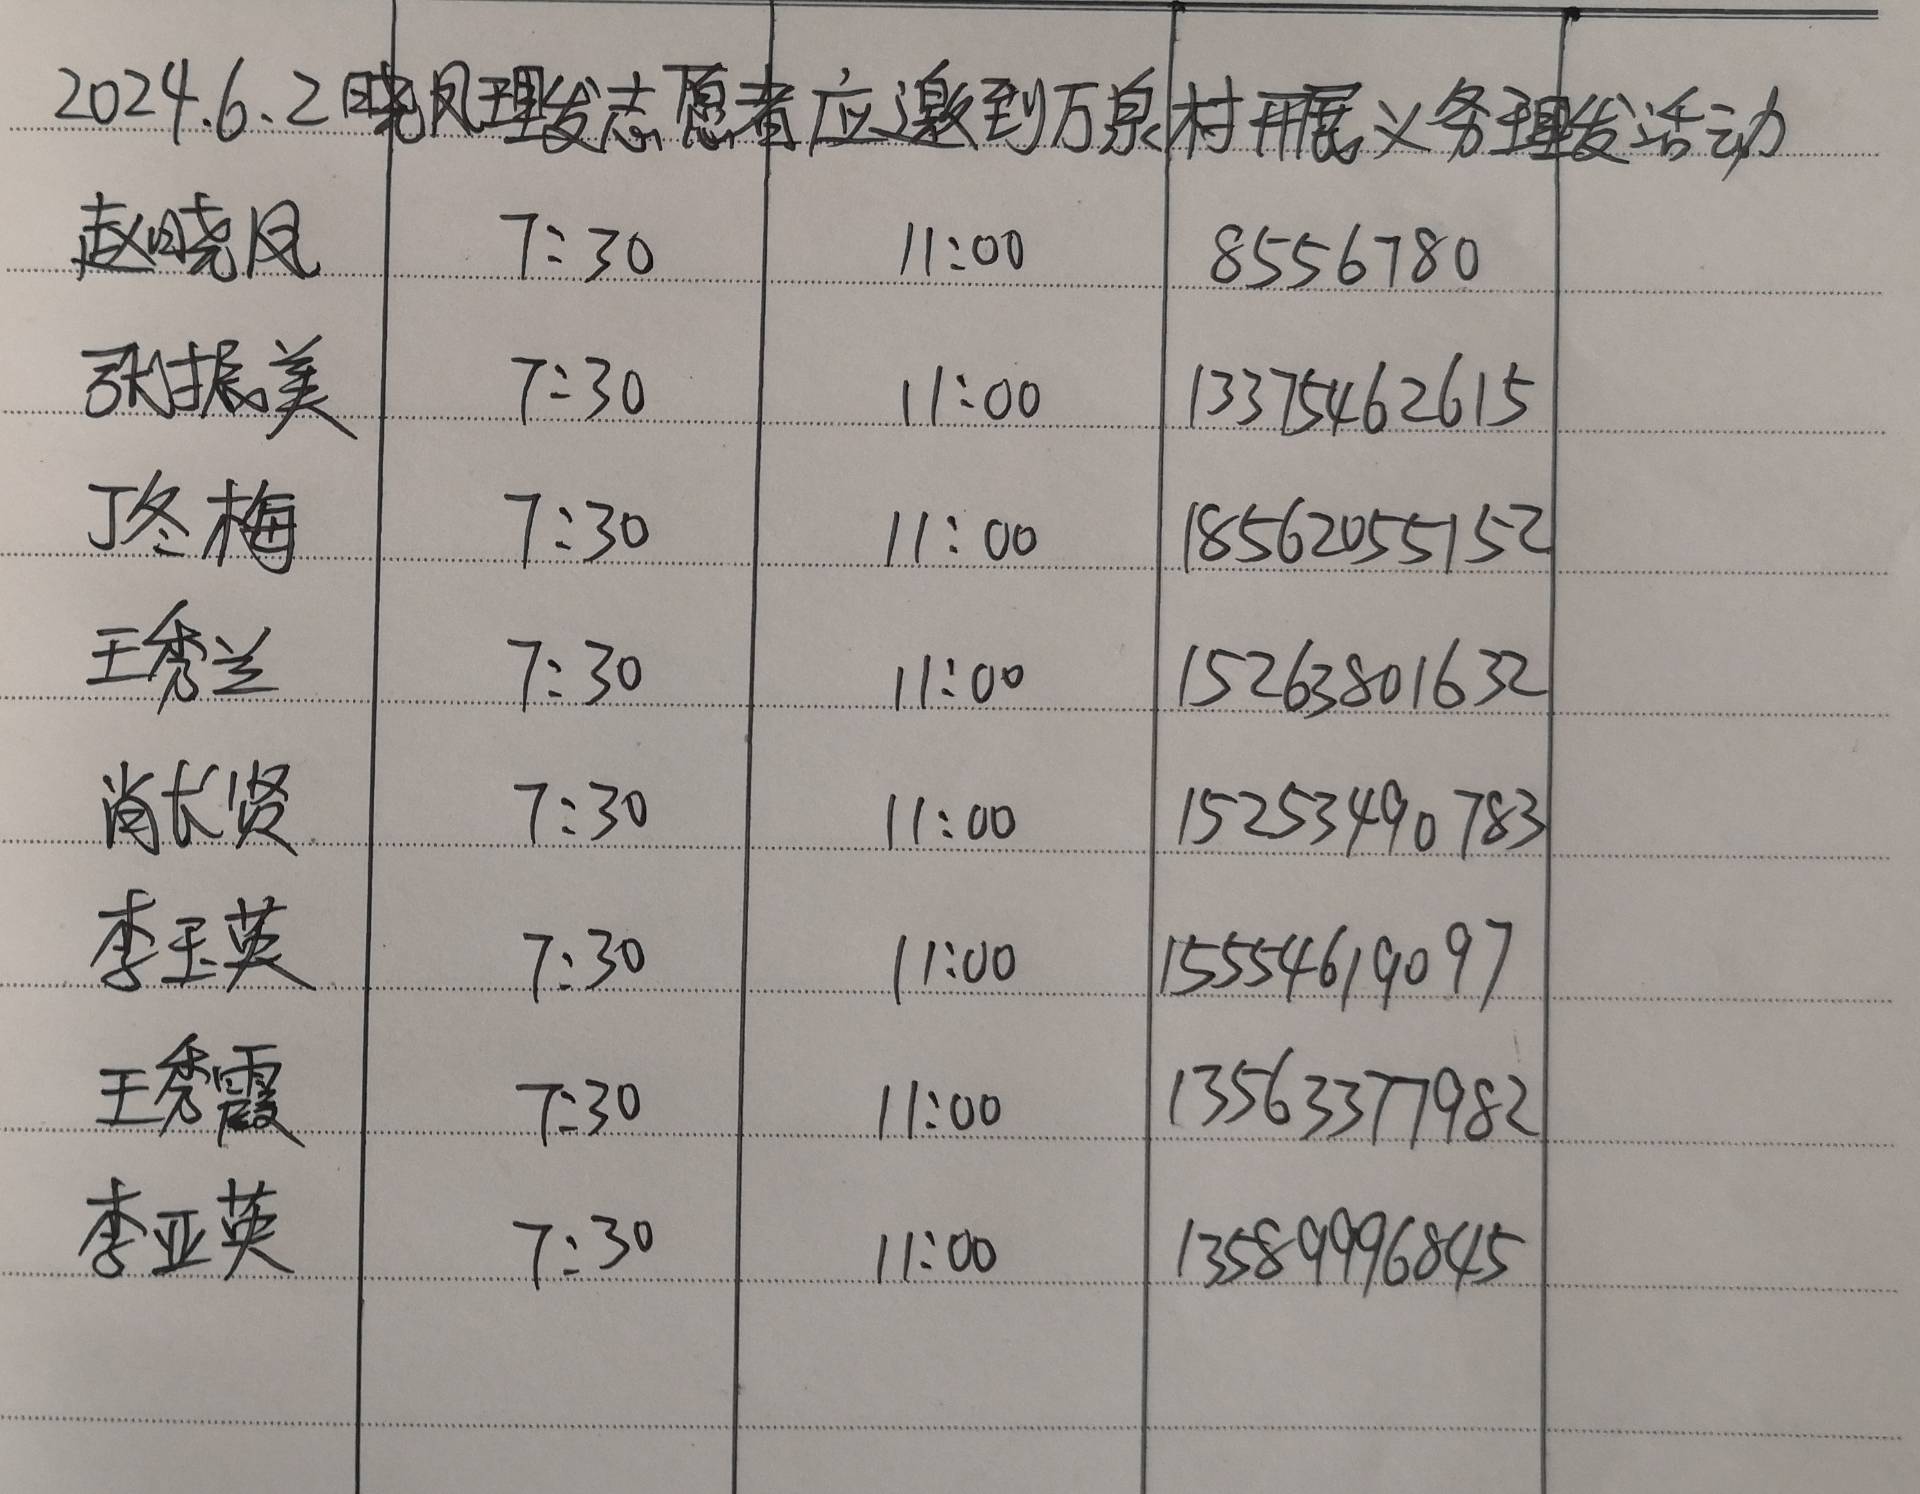 2024.6.2日晓凤理发志愿者应邀到万泉村开展义务理发活动
赵晓凤 7:30 11:00 8556780
张振美 7:30 11:00 13375462615
丁冬梅 7:30 11:00 18562055152
王秀兰 7:30 11:00 15263801632
肖长贤 7:30 11:00 15253490783
李玉英 7:30 11:00 15554619097
王秀霞 7:30 11:00 13563377982
李亚英 7:30 11:00 13589996845